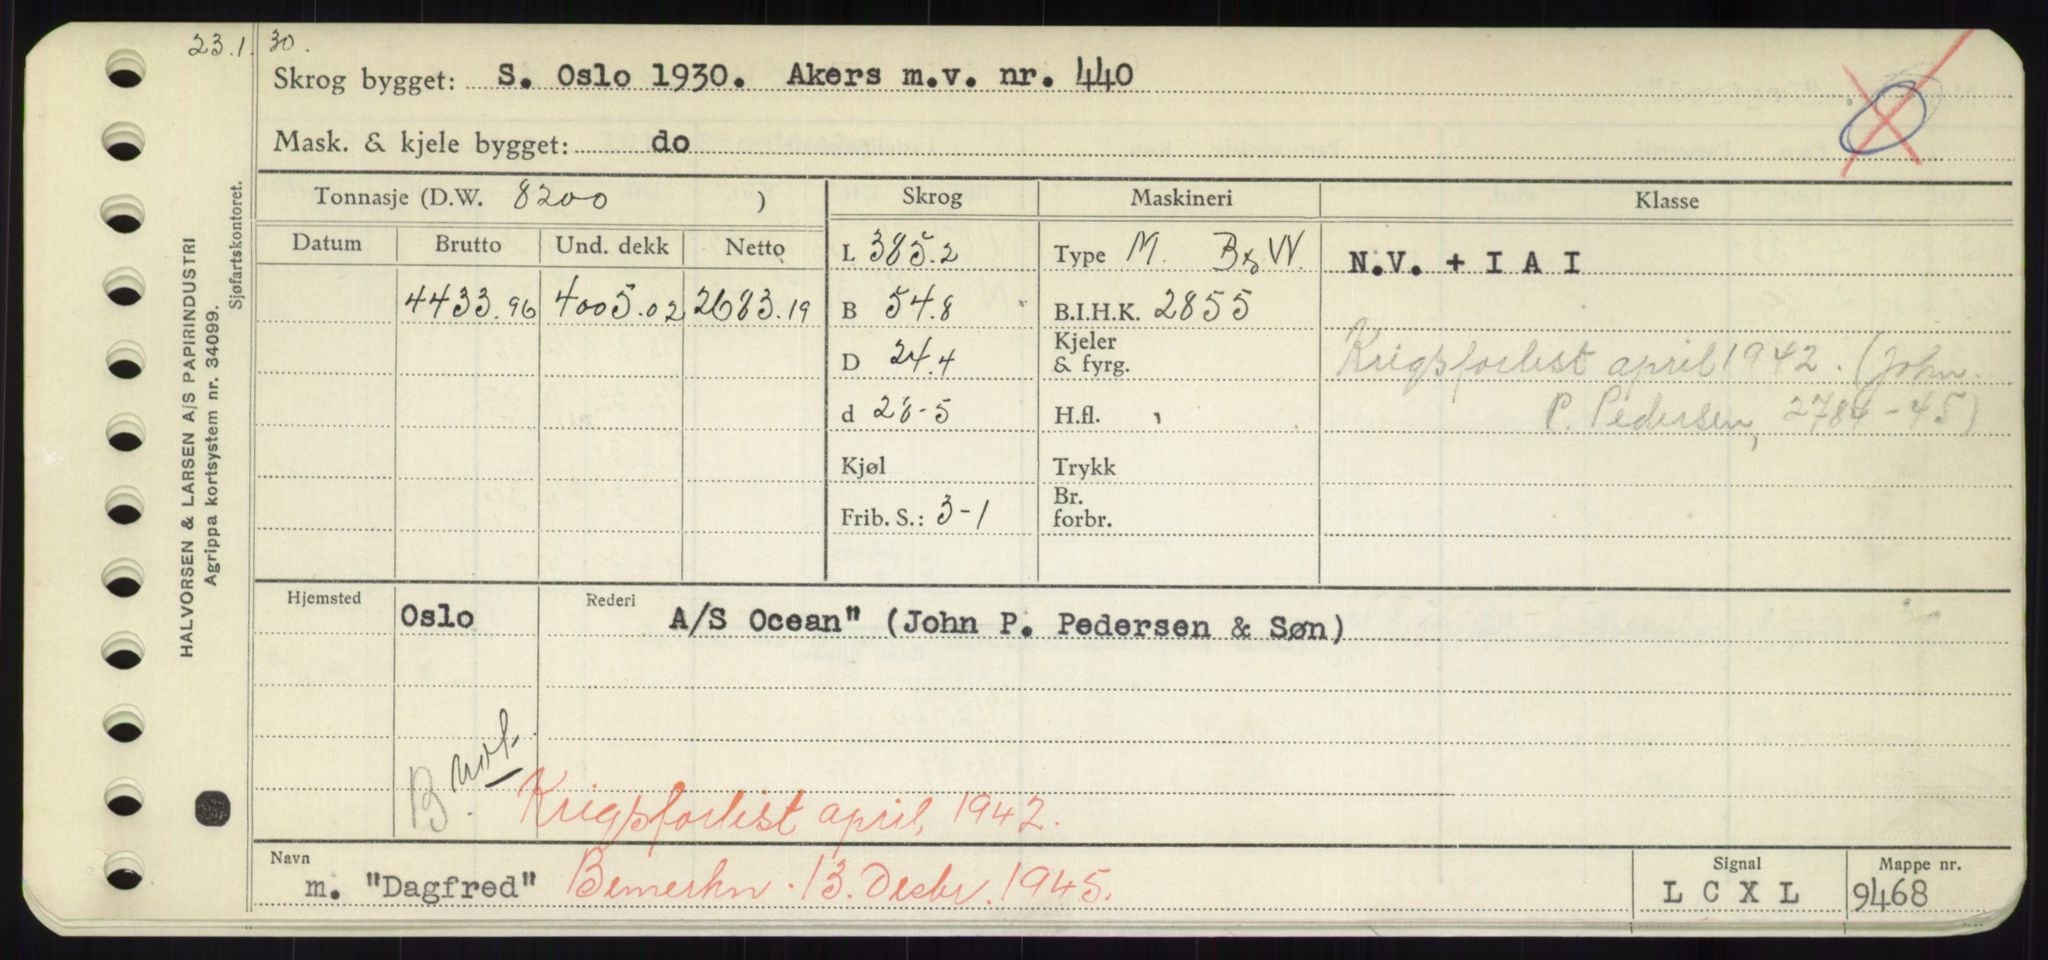 23.1.30.
Skrog bygget: S. Oslo 1930. Akers m.v. nr. 440
Mask. & kjele bygget: do
Tonnasje (D.W. 8200 ) Skrog Maskineri Klasse
Datum Brutto Und. dekk Netto L 385.2 Type M. B & W. N.V. + I A I
4433.96 4005.02 2683.19 B 54.8 B.I.H.K. 2855
D 24.4 Kjeler & fyrg. Krigsforlist april 1942. (John.
d 26-5 H.fl. P. Pedersen, 2784-45)
Kjøl Trykk
Frib. S.: 3-1 Br. forbr.
Hjemsted Oslo Rederi A/S Ocean" (John P. Pedersen & Søn)
B.
Krigsforlist april, 1942.
Navn m. "Dagfred" Bemerkn. 13. Decbr. 1945. Signal L C X L Mappe nr. 9468
HALVORSEN & LARSEN A/S PAPIRINDUSTRI
Agrippa kortsystem nr. 34099.
Sjøfartskontoret.